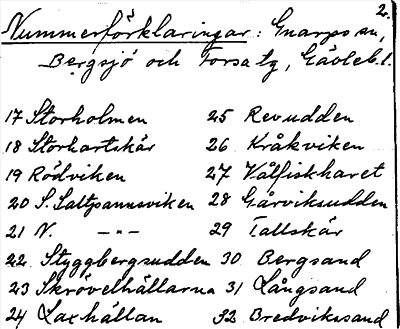 2.
Nummerförklaringar: Gnarps sn,
Bergsjö och Forsa tg, Gävleb.l.
17 Storholmen 25 Revudden
18 Storhartskär 26 Kråkviken
19 Rödviken 27 Välfiskharet
20 S. Saltpannsviken 28 Gårviksudden
21 N. —"— 29 Tallskär
22 Styggbergsudden 30 Bergsand
23 Skrövelhällarna 31 Långsand
24 Laxhällan 32 Bredvikssand